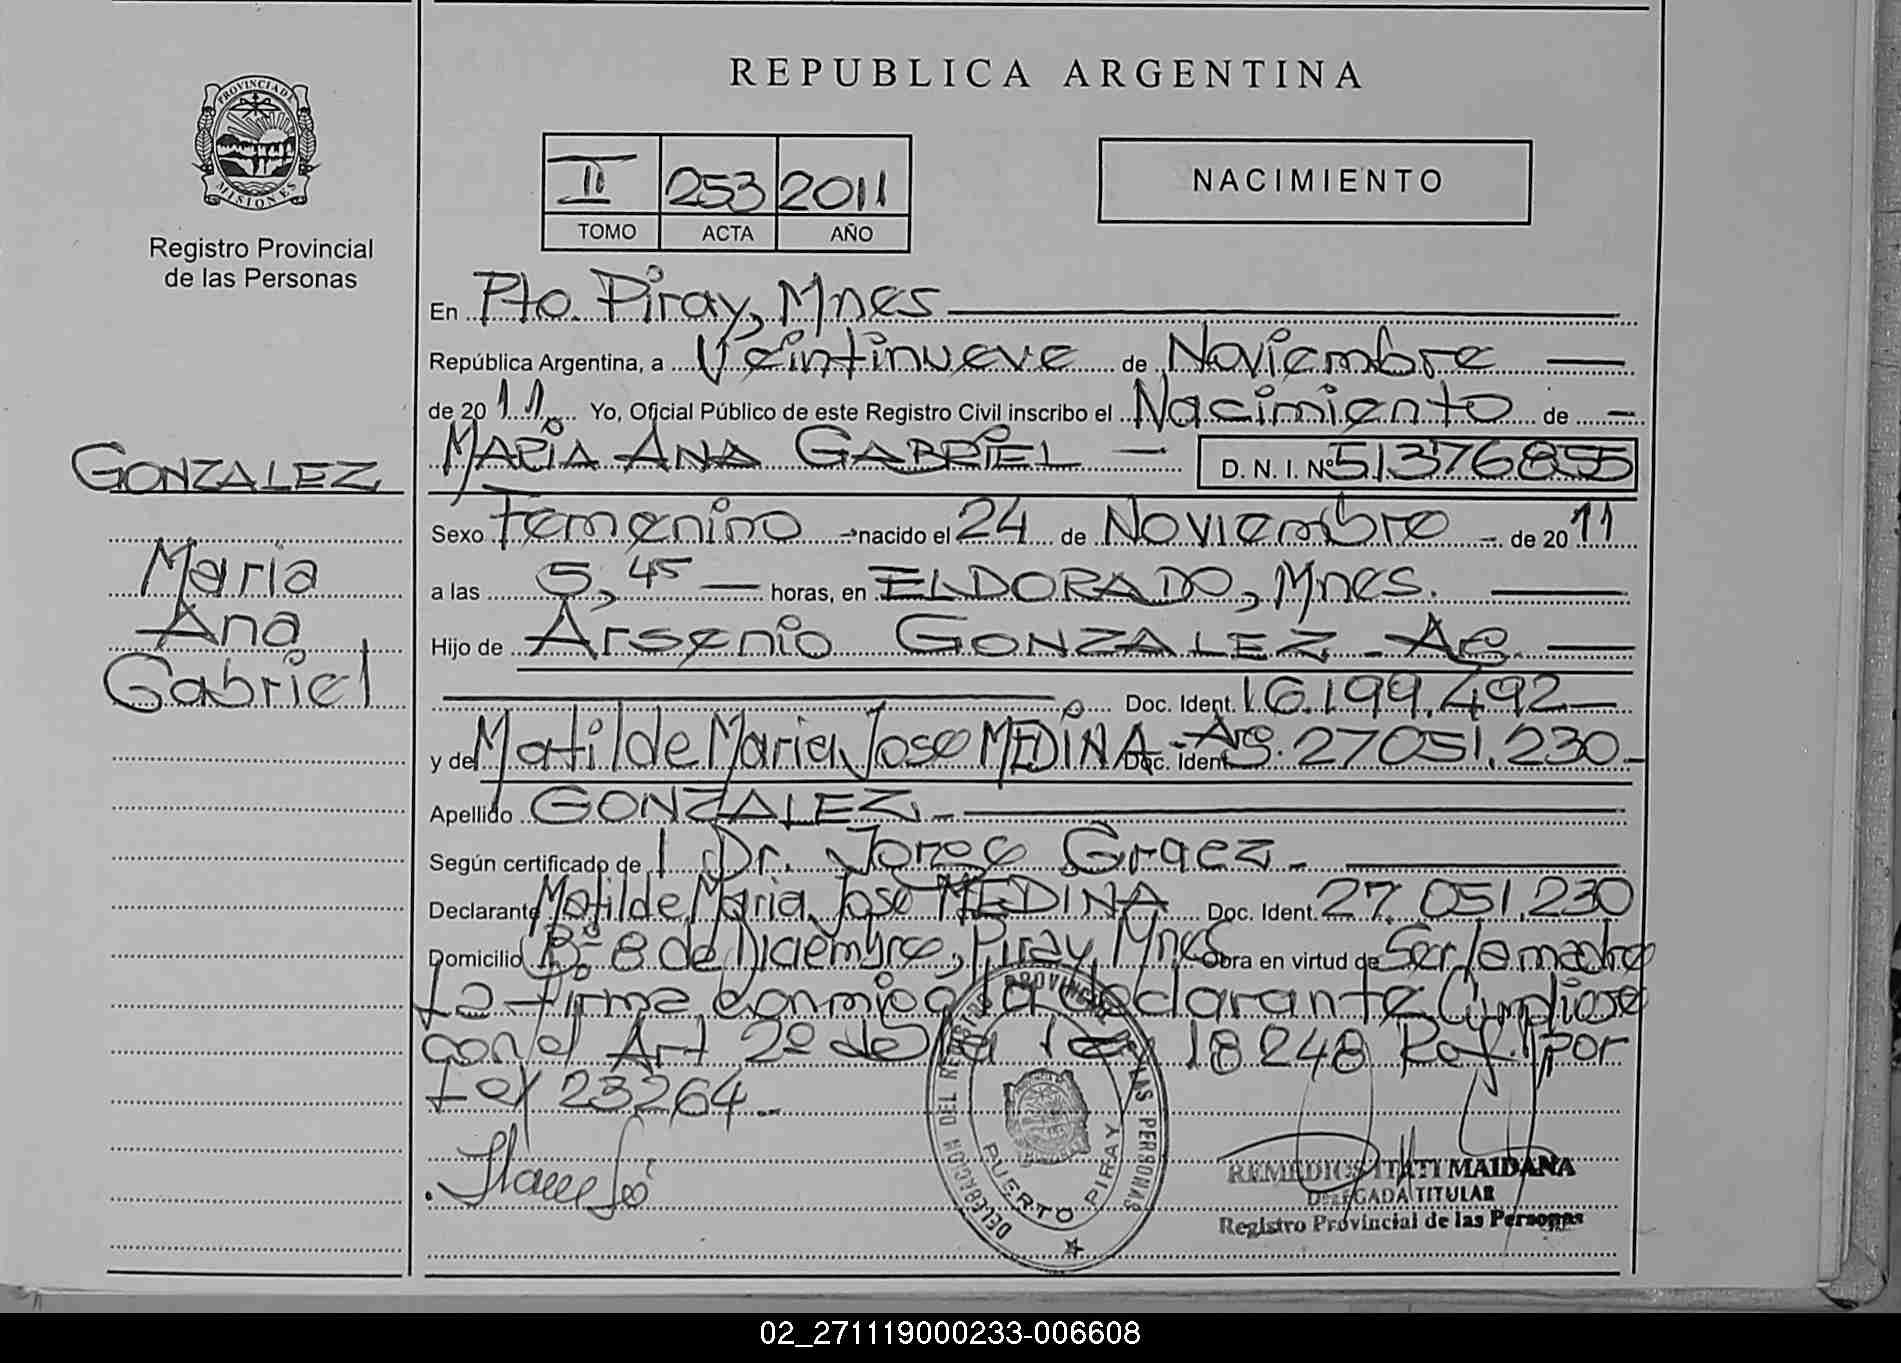 REPUBLICA ARGENTINA
PROVINCIA DE
MISIONES
Registro Provincial
de las Personas
II 253 2011
TOMO ACTA AÑO
NACIMIENTO
En Pto. Piray, Mnes
República Argentina, a Veintinueve de Noviembre
de 2011 Yo, Oficial Público de este Registro Civil inscribo el Nacimiento de
MARIA ANA GABRIEL D. N. I. Nº 51376855
Sexo Femenino nacido el 24 de Noviembre de 2011
a las 5,45 horas, en ELDORADO, Mnes.
Hijo de Arsenio GONZALEZ - Ag.
Doc. Ident. 16.199.492
y de Matilde Maria Jose MEDINA - Ag. Doc. Ident. 27051.230
Apellido GONZALEZ.
Según certificado de Dr. Jorge Graez.
Declarante Matilde Maria Jose MEDINA Doc. Ident. 27.051.230
Domicilio Bº 8 de Diciembre, Piray, Mnes Obra en virtud de Ser la madre
La firma conmigo la declarante Cumpliose
con el Art 2º de la Ley 18248 Ref. por
Ley 23264.
GONZALEZ
Maria
Ana
Gabriel
DELEGACION DEL REGISTRO PROVINCIAL DE LAS PERSONAS
PUERTO PIRAY
REMEDIOS ITATI MAIDANA
DELEGADA TITULAR
Registro Provincial de las Personas
02_271119000233-006608